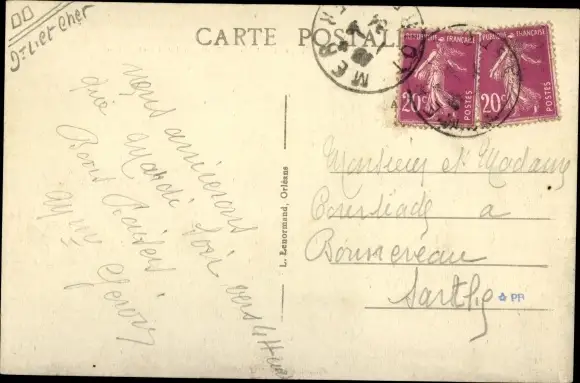 Dt Liet Cher
CARTE POSTALE
MER
REPUBLIQUE FRANÇAISE
20c
POSTES
REPUBLIQUE FRANÇAISE
20c
POSTES
nous arriverons
que Mardi soir vers 4 H
Bons Baisers
Mme
L. Lenormand, Orléans
Monsieur et Madame
a
Bonnereau
Sarthe
PB